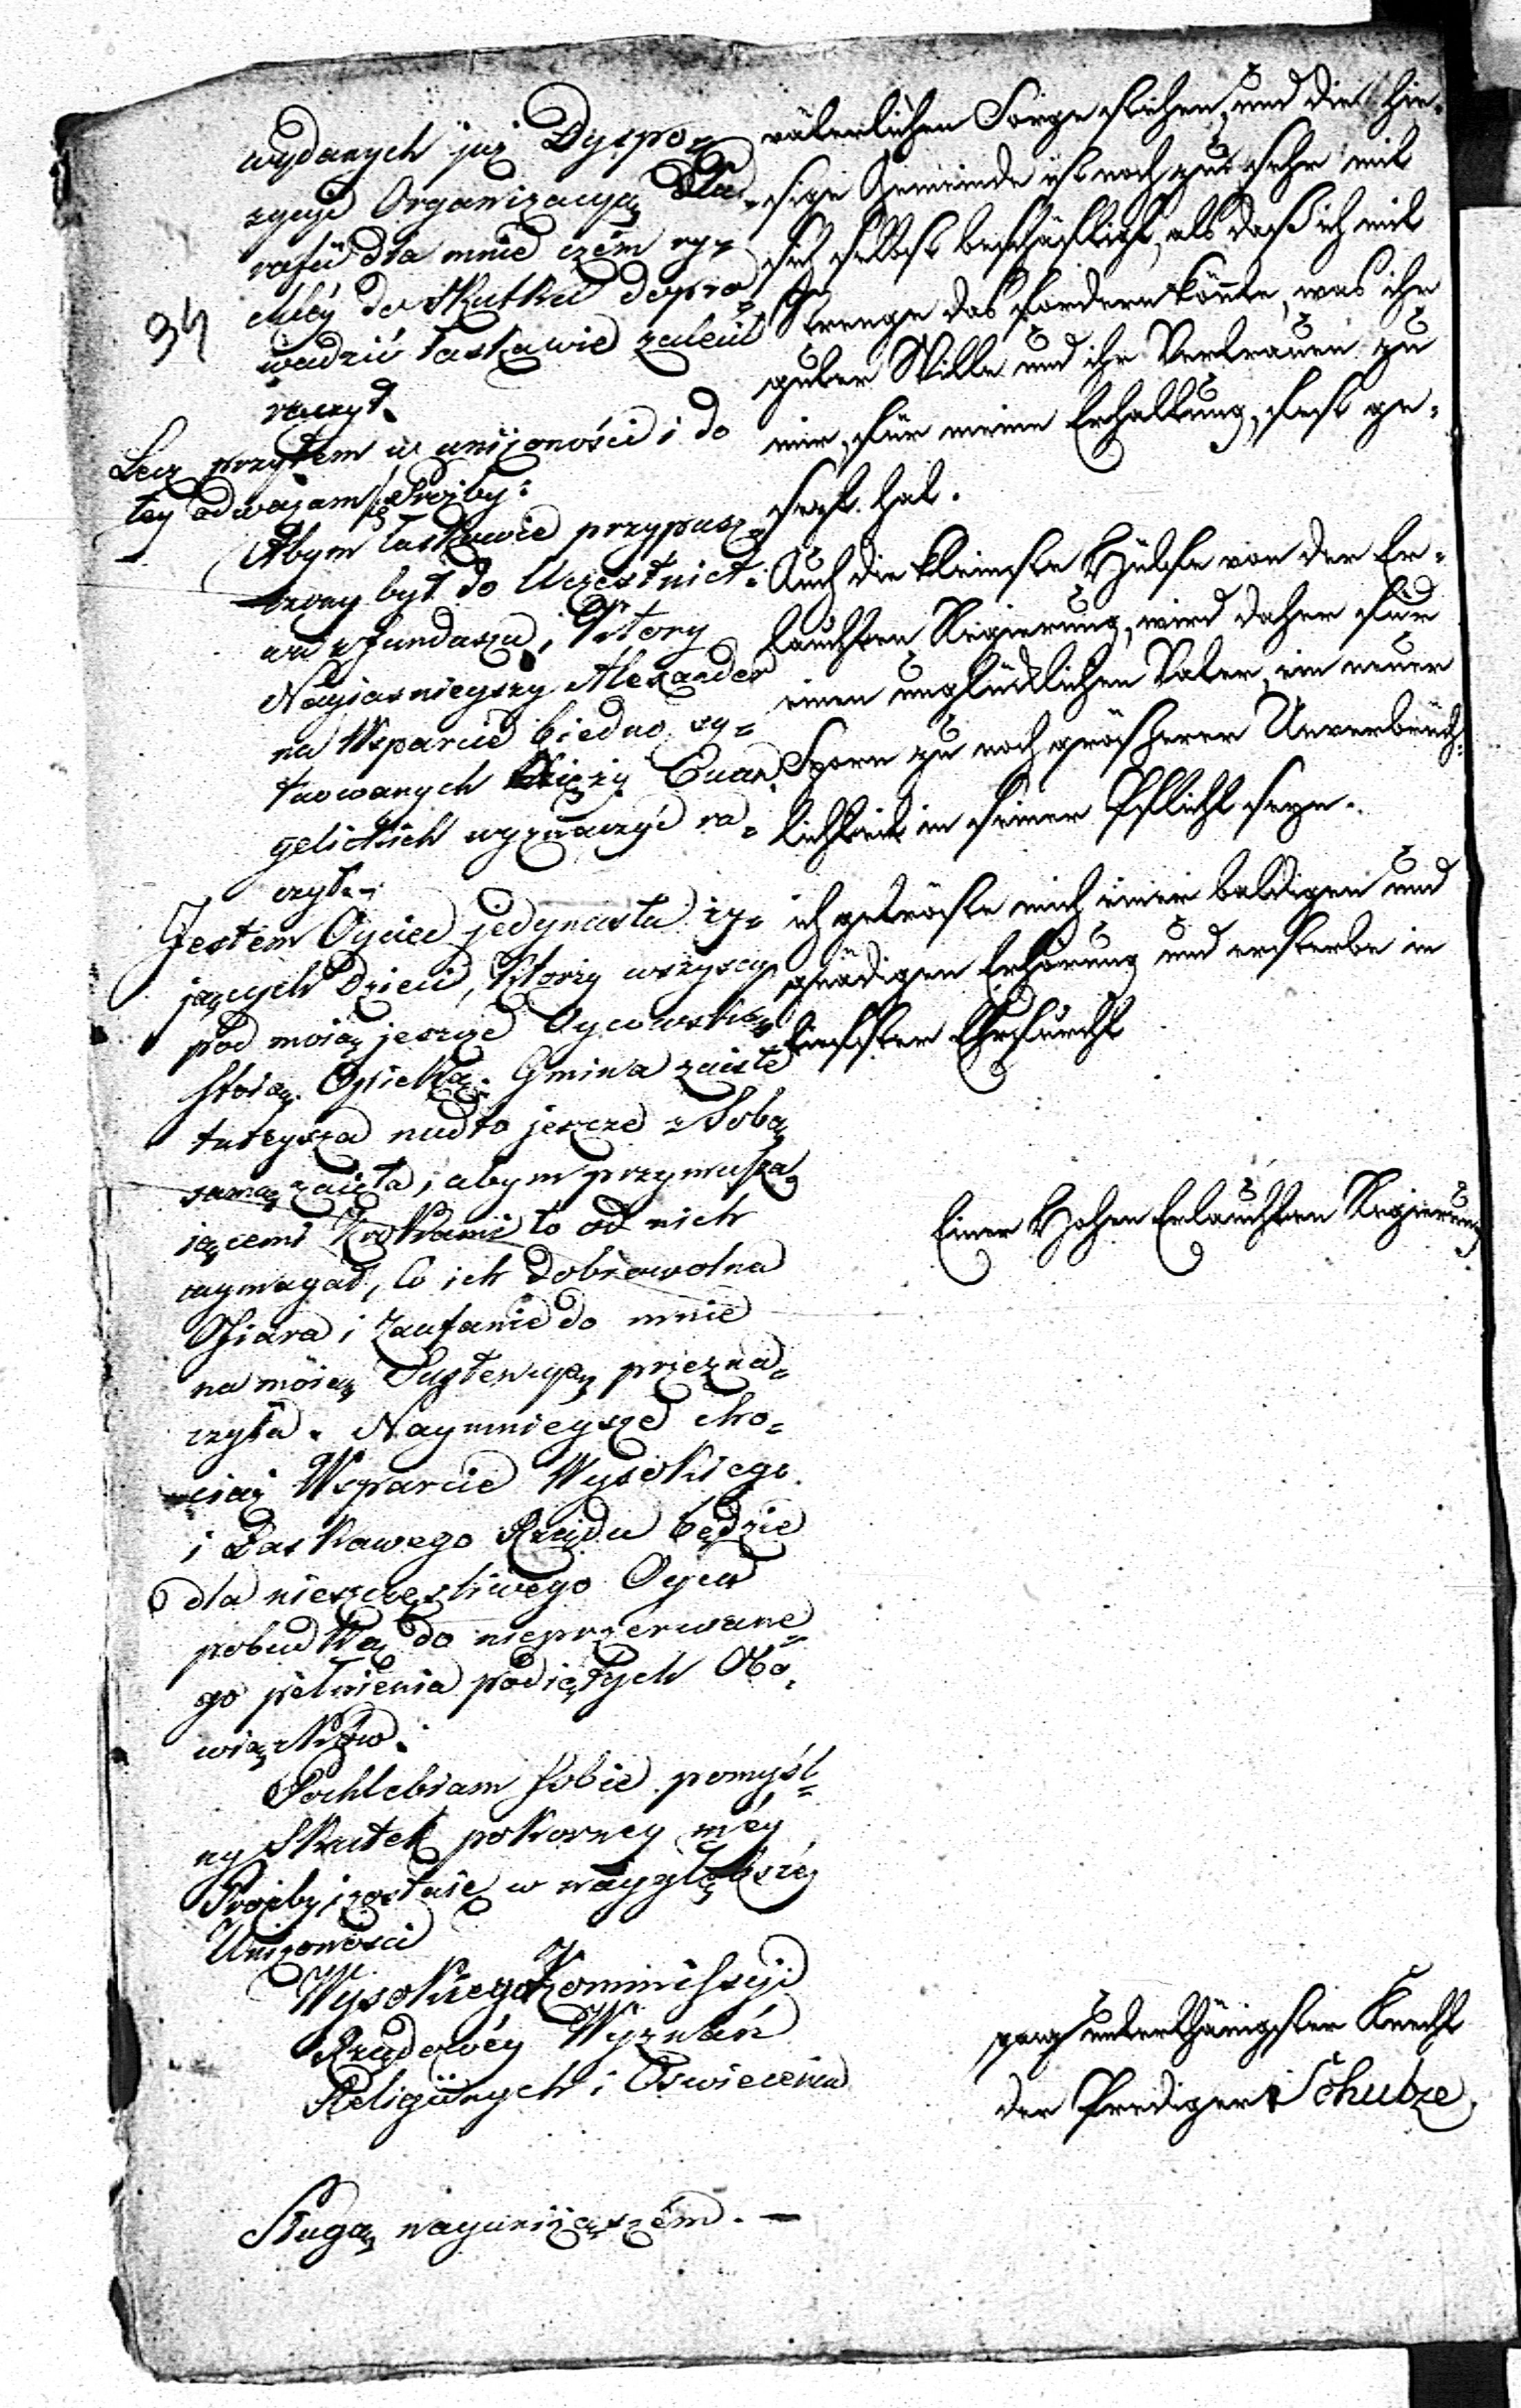 wydanych już Dyspo=
zycye Organizacyą Pla=
rafii dla mnie czém ry=
chléy do Skutku dopro=
wadzić łaskawie zalecić
raczył.
Lecz przytem w uniżoności i do
tey odważam się Proźby:
Abym łaskawie przypusz=
czony był do Uczestnict=
wa Funduszu, Ktory
Nayiasnieyszy Alexander
na Wsparcie biedno sy=
tuowanych Xięży Ewan=
gelickich wyznaczyć ra=
czył.
Jestem Oyciec jedynastu ży=
jących Dzieci, Ktorzy wszyscy
pod moią jeszcze Oycowską
stoią Opieką. Gmina zaiste
tuteysza nadto jeszcze z Sobą
samą zaięta, abym przymusza=
iącemi Krokami to od nich
wymagał, Co ich dobrowolna
Ofiara i Zaufanie do mnie
na moią Sustencyą przezna=
czyła. Naymnieysze cho=
ciaż Wsparcie Wysokiego
i Łaskawego Rządu będzie
dla nieszczęśliwego Oyca
pobudką do nieprzerwane=
go pełnienia podiętych Obo=
wiązków.
Pochlebiam sobie pomyśl=
ny Skutek pokorney méy
Proźby i zostaię w naygłębszéy
Uniżonosci
Wysokiego Kommissyi
Rządowéy Wyznań
Religiinych i Oswiecenia
Sługą nayuniższém. —
34
väterlichen Sorge stehen, und die hie=
sige Gemeinde ist noch zu sehr mit
sich selbst beschäftigt, als daß ich mit
Strenge das fordern könte, was ihr
guter Wille und ihr Vertrauen zu
mir, für meine Erhaltung, fest ge=
setzt hat.
Auch die kleinste Hülfe von der Er=
lauchten Regierung, wird daher für
einen unglücklichen Vater, ein neuer
Sporn zu noch größerer Unverbrüch=
lichkeit in seiner Pflicht seyn.
ich getröste mich einer baldigen und
gnädigen Erhörung und ersterbe in
tiefster Ehrfurcht
Einer Hohen Erlauchten Regierung
ganz unterthänigster Knecht
der Prediger Schulze.